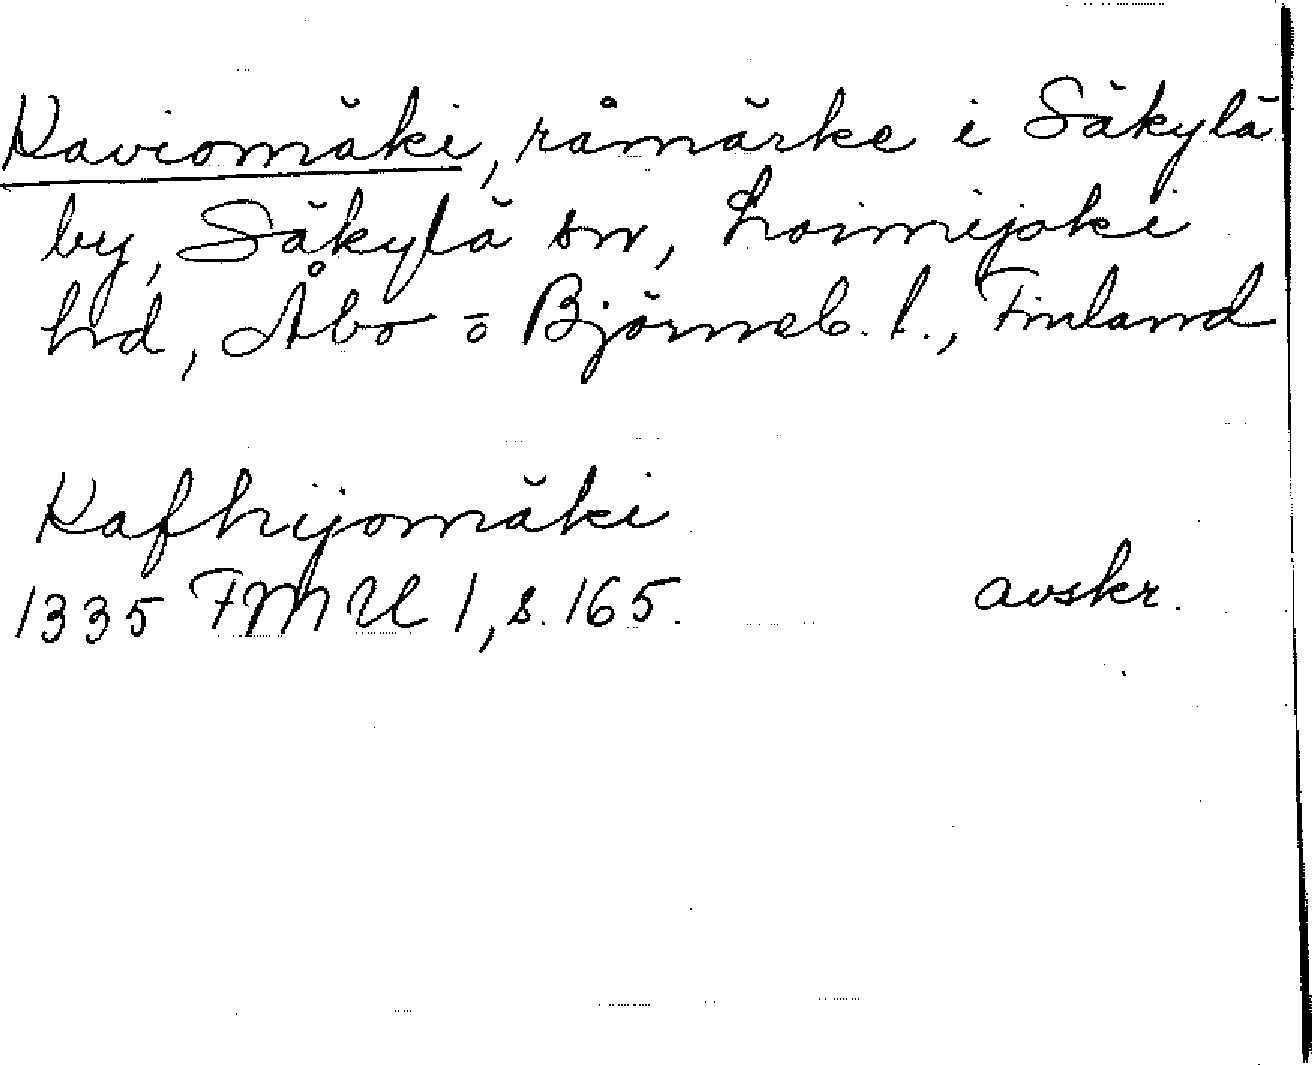 Kaviomäki, råmärke i Säkylä
by, Säkylä sn, Loimijoki
hd, Åbo o Björneb. l., Finland
Kafhijomäki
1335 FMU 1, s. 165.
avskr.